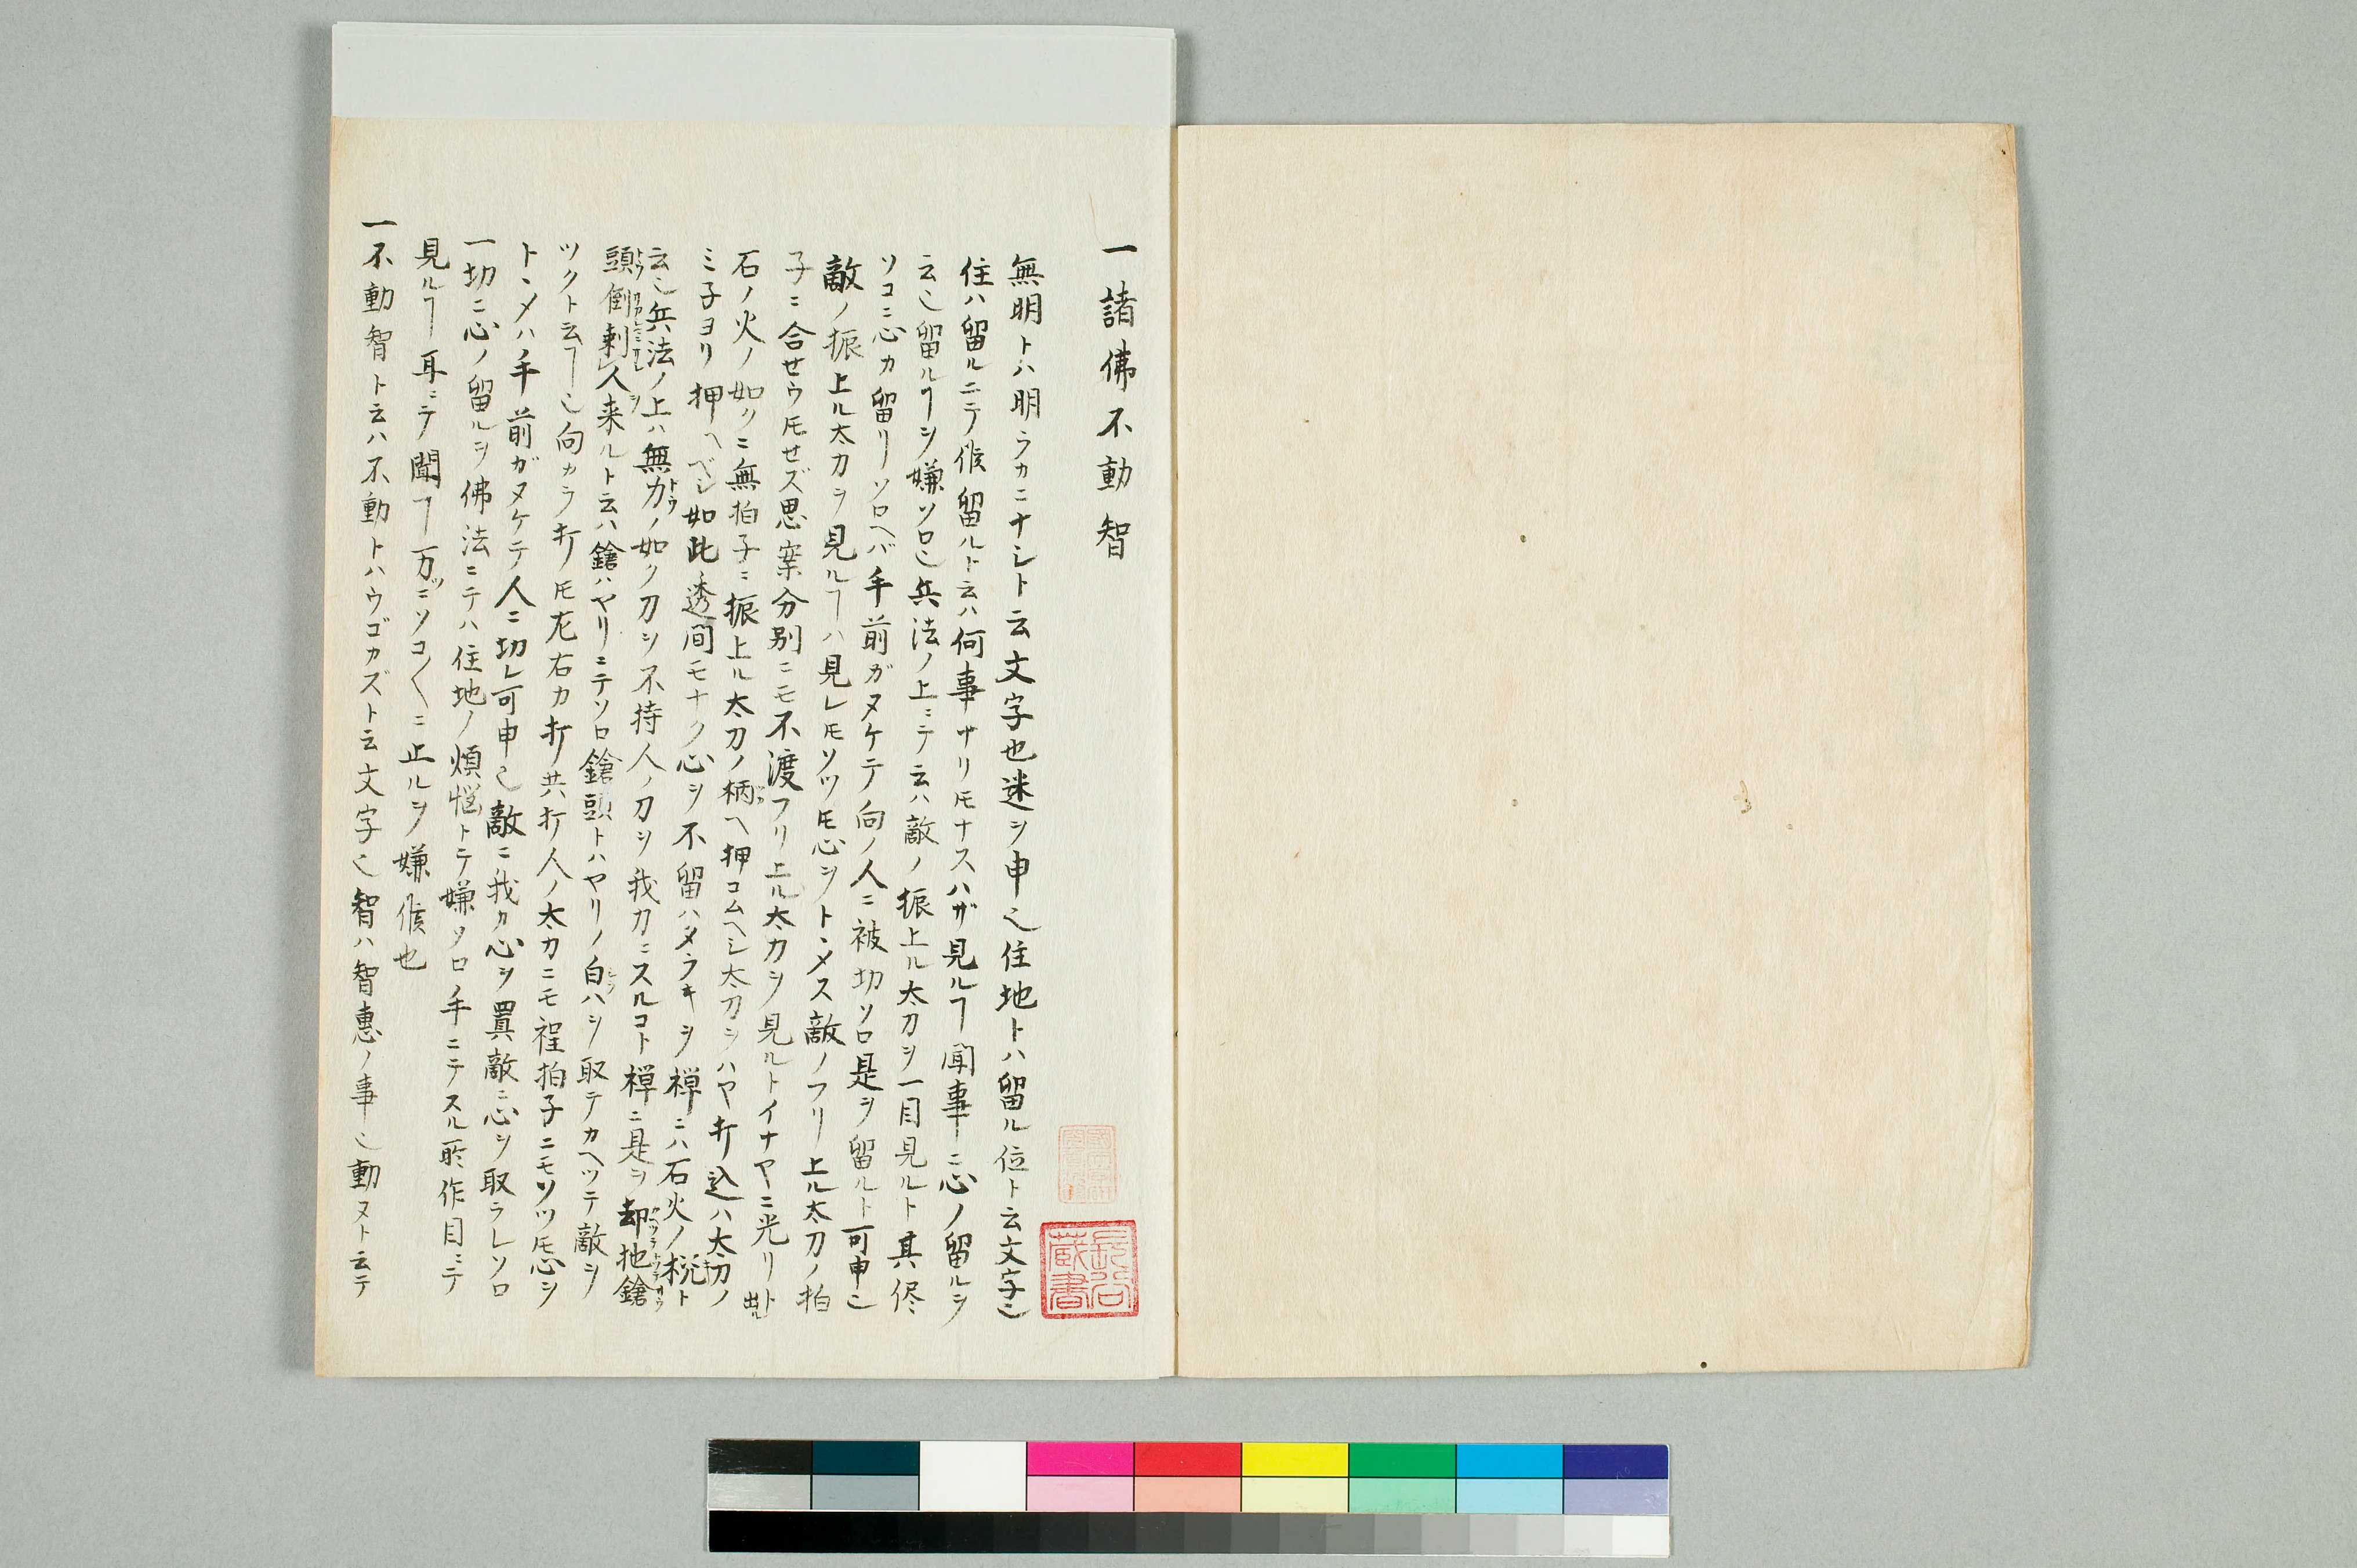 一諸佛不動智
無明トハ明ラカニナシト云文字也迷ヲ申也住地トハ留ル位ト云文字也
住ハ留ルニテ候留ルト云ハ何事ナリ𪜈ナスハザ見ルヿ聞事ニ心ノ留ルヲ
云也留ルヿヲ嫌ソロ也兵法ノ上ニテ云ハ敵ノ振上ル太刀ヲ一目見ルト其侭
ソコニ心カ留リソロヘバ手前ガヌケテ向ノ人ニ被切ソロ是ヲ留ルト可申也
敵ノ振上ル太刀ヲ見ルヿハ見レ𪜈ソツ𪜈心ヲトヽメス敵ノフリ上ル太刀ノ拍
子ニ合せウ𪜈せズ思案分別ニモ不渡フリ上ル太刀ヲ見ルトイナヤニ光リト出ル
石ノ火ノ如クニ無拍子ニ振上ル太刀ノ柄ヘ押コムヘシ太刀ヲハヤ打込ハ太刀ノ
ミ子ヨリ押ヘベシ如此透間モナク心ヲ不留ハタラキヲ禅ニハ石火ノ機ト
云也兵法ノ上ハ無刀トウノ如ク刀ヲ不持人ノ刀ヲ我刀ニスルコト禅ニ是ヲ却地鎗
頭倒刺人来ルト云ハ鎗ハヤリニテソロ鎗頭トハヤリノ白ハヲ取テカヘツテ敵ヲ
ツクト云ヿ也向カラ打𪜈左右カ打共打人ノ太刀ニモ程拍子ニモソツ𪜈心ヲ
トヽメハ手前ガヌケテ人ニ切レ可申也敵ニ我カ心ヲ置敵ニ心ヲ取ラレソロ
一切ニ心ノ留ルヲ佛法ニテハ住地ノ煩悩トテ嫌ソロ手ニテスル所作目ニテ
見ルヿ耳ニテ聞ヿ万ツニソコ〱ニ止ルヲ嫌候也
一不動智ト云ハ不動トハウゴカズト云文字也智ハ智惠ノ事也動ヌト云テ
長谷蔵書